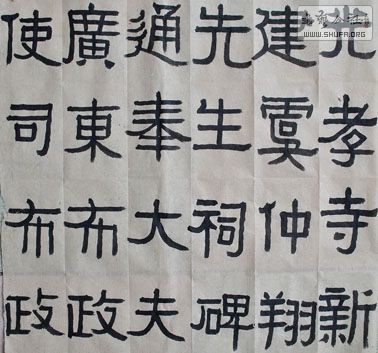 光孝寺新
建虞仲翔
先生祠碑
通奉大夫
廣東布政
使司布政
WWW.SHUFA.ORG